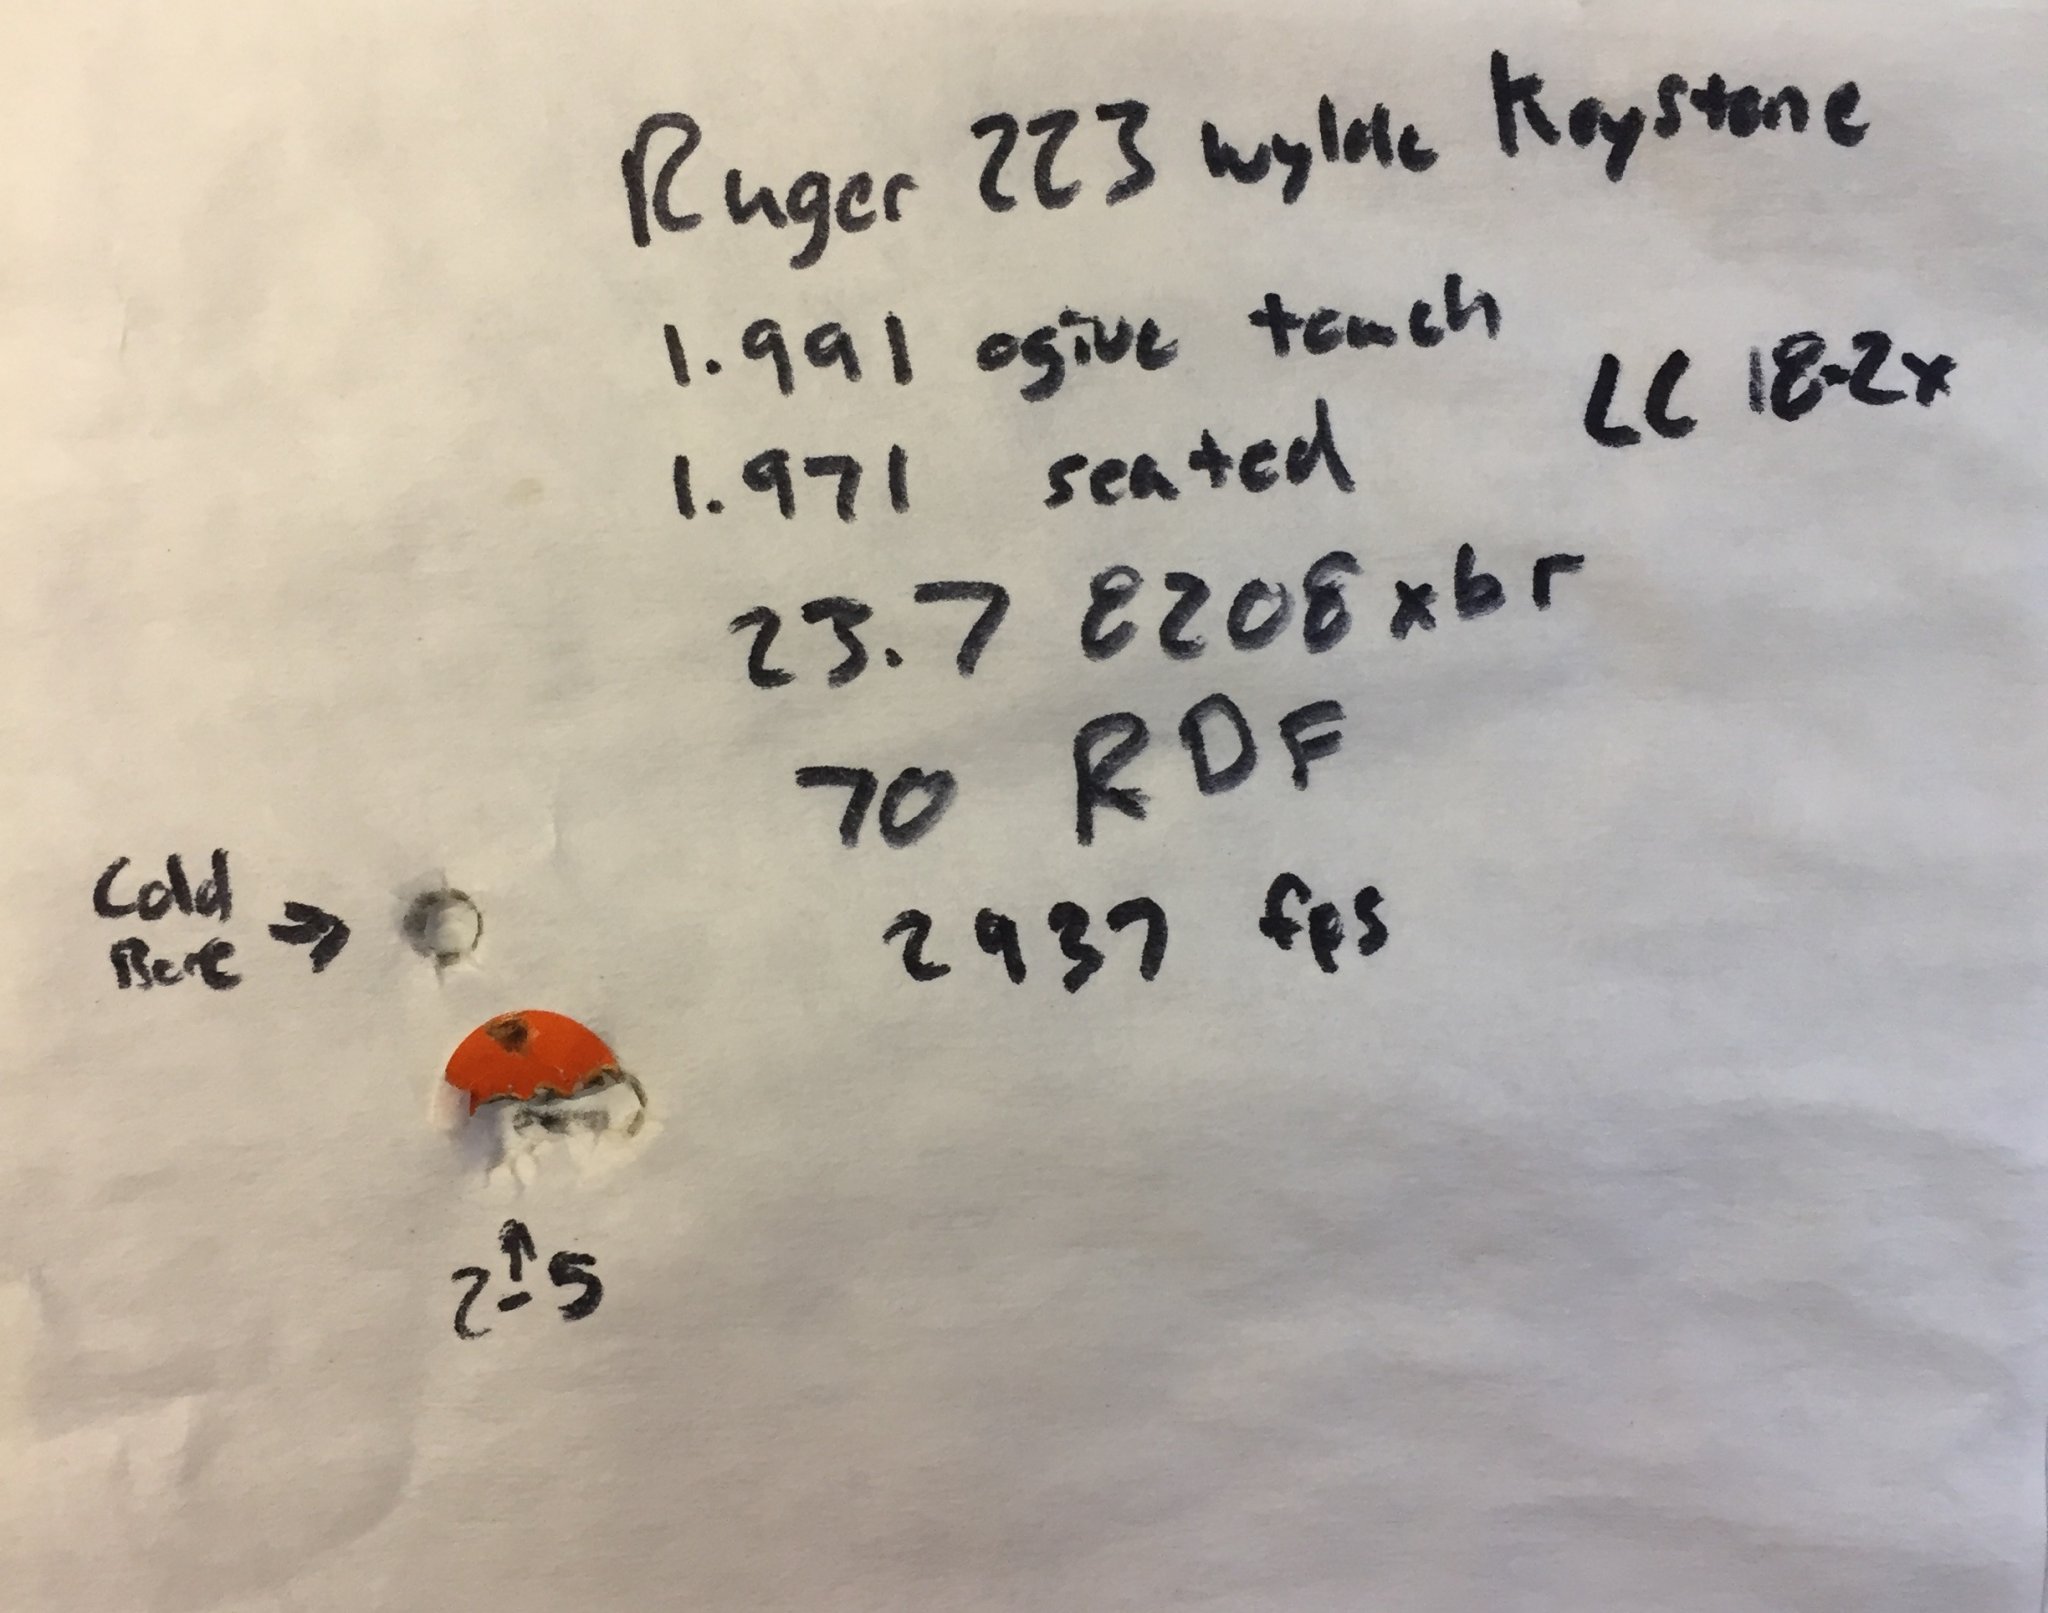 Ruger 223 wylde Keystone
1.991 ogive touch
LC 18-2x
1.971 seated
23.7 8208 xbr
70 RDF
2937 fps
Cold
Bore
2-5